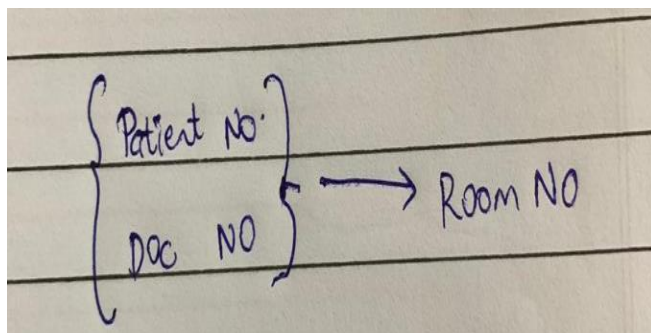 Patient NO.
DOC NO
Room NO